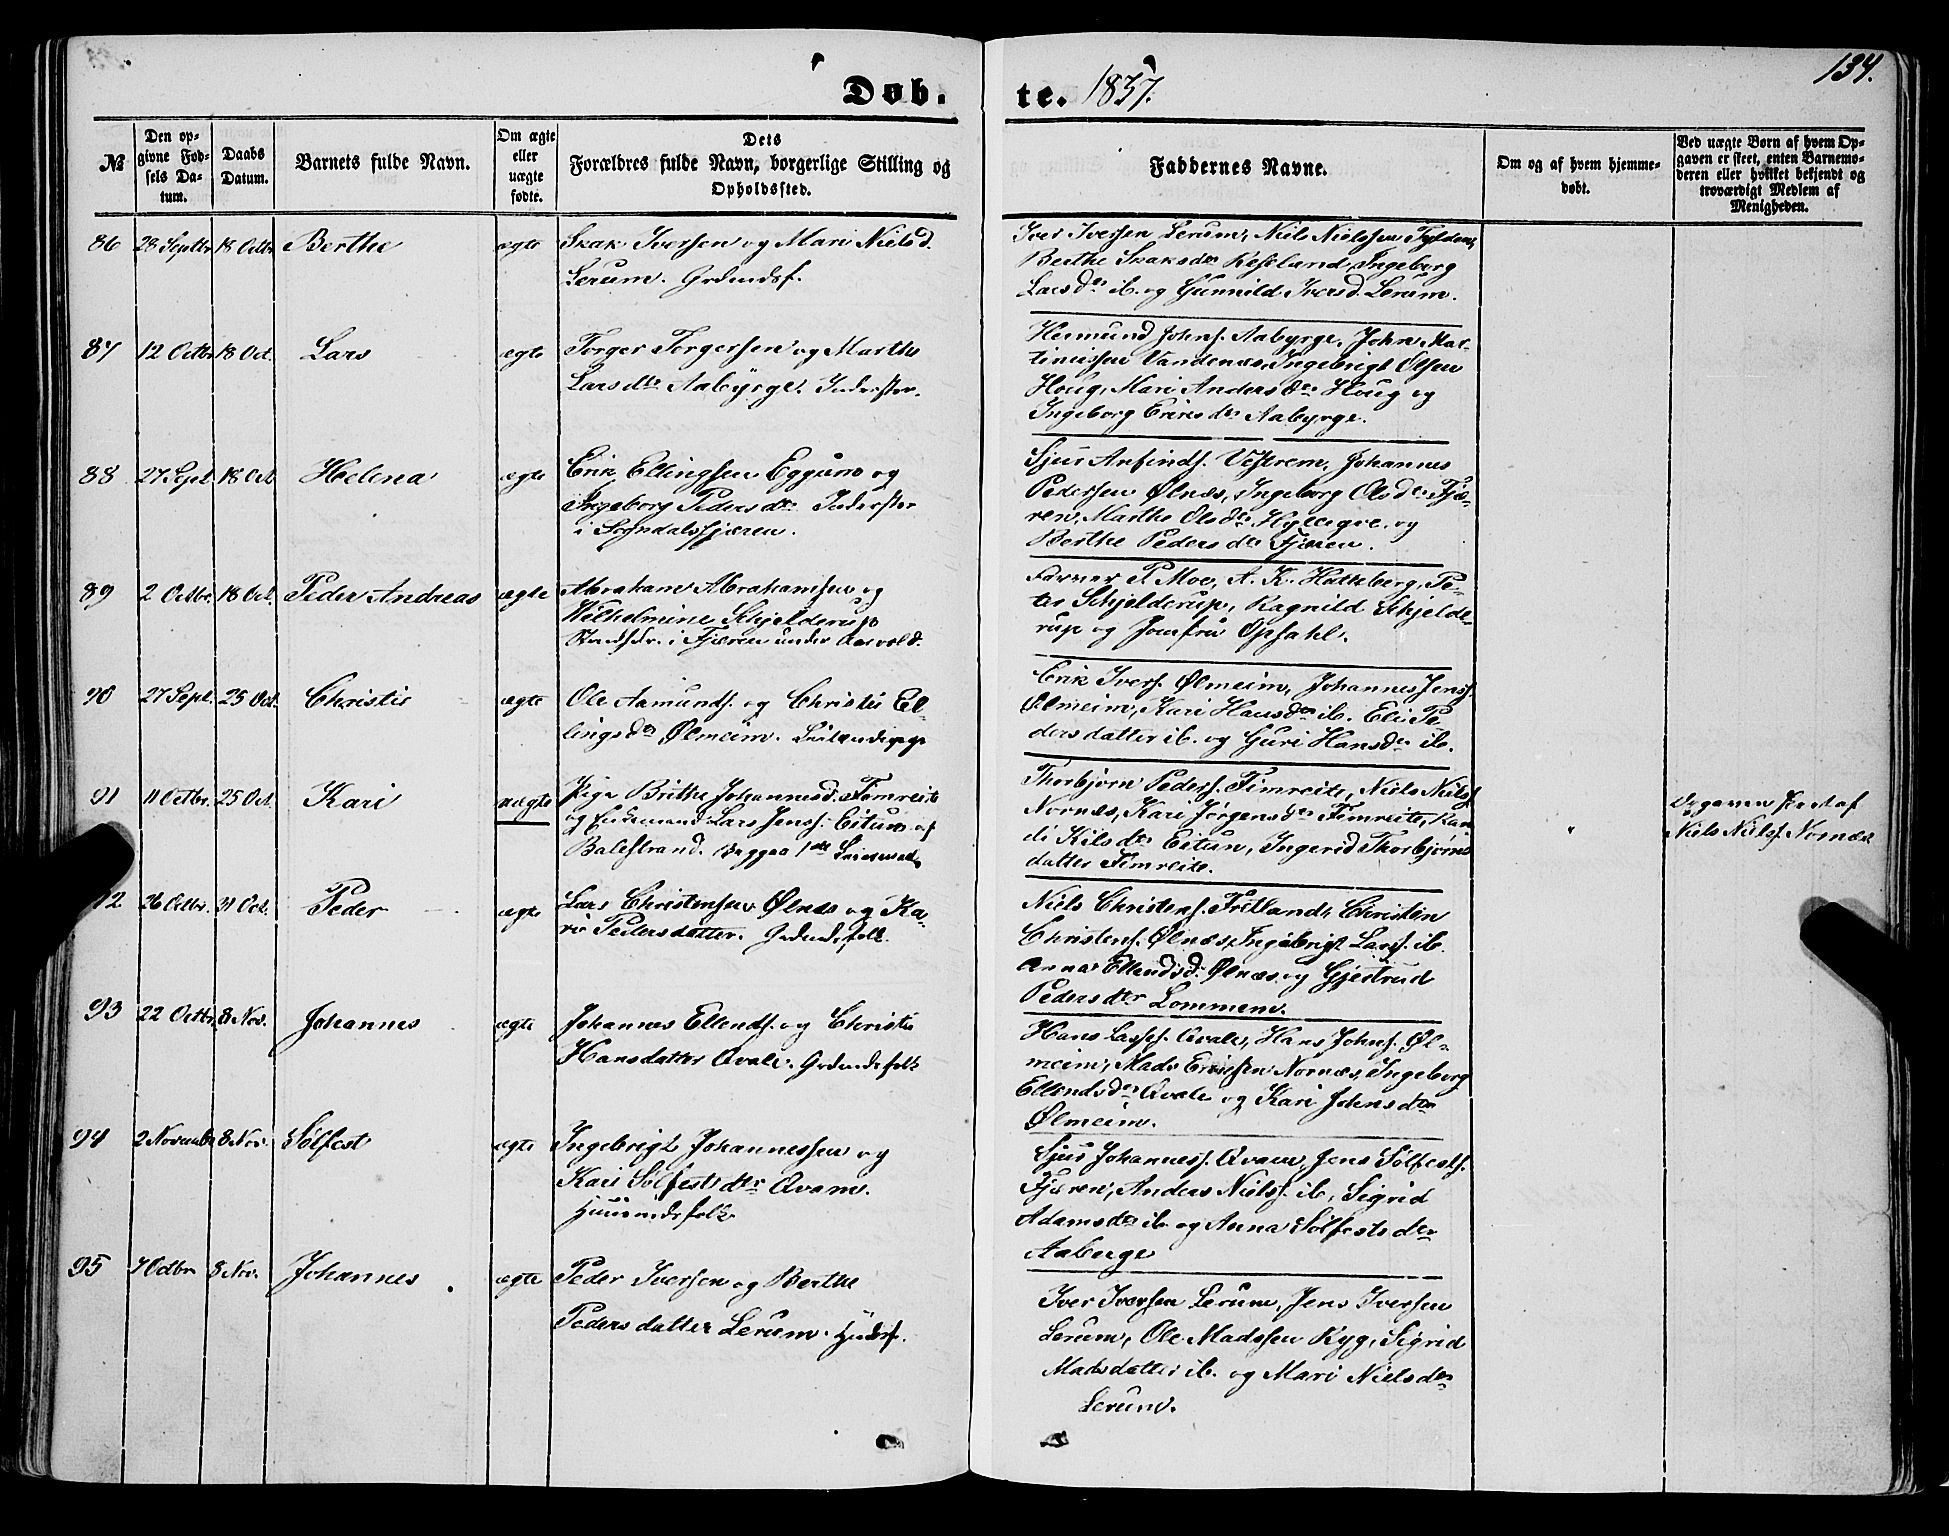 134.
Døb. te. 1857.
№
Den opgivne Fødsels Datum.
Daabs Datum.
Barnets fulde Navn.
Om ægte eller uægte fødte.
Dets
Forældres fulde Navn, borgerlige Stilling og
Opholdssted.
Faddernes Navne.
Om og af hvem hjemmedøbt.
Ved uægte Børn af hvem Opgaven er skeet, enten Barnemoderen eller hvilket bekjendt og troværdigt Medlem af Menigheden.
86 28 Septbr 18 Octbr Berthe ægte Isak Iversen og Mari Nielsd.
Lerum. Grdmdsf.
Iver Iversen Lerum, Niels Nielssen
Berthe Isaksdr Kjeseland, Ingeborg
Larsdr ib. og Gunnild Iversd. Lerum.
87 12 Octbr 18 Oct. Lars ægte Torger Torgersen og Marthe
Larsdtr Aabyrge. Inderster.
Hermund Johns. Aabyrge, John Mar-
tinussen Vandenæs, Ingebrigt Olsen
Houg, Mari Andersdr Houg og
Ingeborg Eriksdr Aabyrge.
88 27 Sept. 18 Oct Helena ægte Erik Ellingsen Eggum og
Ingeborg Pedersdtr Inderster
i Sogndalsfjæren.
Sjur Anfinds. Vestrem, Johannes
Pedersen Ølnæs, Ingeborg Olsdr Fjæ-
ren, Marthe Olsdtr Hyllegre og
Berthe Pedersdtr Fjæren.
89 2 Octbr. 18 Oct. Peder Andreas ægte Abraham Abrahamsen og
Wilhelmine Schjelderup
Strandsdr. i Fjæren under Aarvold.
Farver P. Moe, A. K. Hatteberg, Pe-
ter Schjelderup, Ragnild Schjelde-
rup og Jomfru Opsahl.
90 27 Sept. 25 Oct. Christie ægte Ole Aamunds. og Christie El-
lingsdr Ølmeim.
Erik Ivers. Ølmeim, Johannes Jenss.
Ølmeim, Kari Hansdtr ib. Eli Pe-
dersdatter ib. og Guri Hansdr ib.
91 11 Octbr. 25 Oct. Kari uægte Pige Brithe Johannesd. Fimreite
og Enkemand Lars Jenss. Eitun af
Balestrand. Begges 1ste Leiermaal
Thorbjørn Peders. Fimreite, Niels Niels.
Nornæs, Kari Jørgensdr Fimreite, Ran-
di Kilsdtr Eitun, Ingerid Thorbjørns
datter Fimreite.
Opgaven skeet af
Niels Niels. Nornæs
92 26 Octbr. 31 Oct. Peder ægte Lars Christensen Ølnæs og Ka-
ri Pedersdatter. Grdmdsfolk.
Niels Christens. Fretland, Christen
Christens. Ølnæs, Ingebrigt Larss. ib.
Anna Ellendsd. Ølnæs og Gjertrud
Pedersdtr Lommen.
93 22 Octbr. 8 Nov. Johannes ægte Johannes Ellends. og Christi
Hansdatter Qvale. Grdmdsfolk
Hans Lasses. Qvale, Hans Johns. Øl-
meim, Mads Eriksen Nornæs, Ingeborg
Ellendsdr Qvale og Kari Johnsdtr
Ølmeim.
94 2 Novembr 8 Nov. Sølfest ægte Ingebrigt Johannessen og
Kari Sølfestsdtr Qvam.
Huusmdsfolk
Sjur Johanness. Qvam, Jens Sølfests.
Fjæren, Anders Niels. ib, Sigrid
Adamsdtr ib og Anna Sølfestsdtr
Aaberge
95 7 Octbr 8 Nov. Johannes ægte Peder Iversen og Berthe
Pedersdatter Lerum. Hmdsf.
Iver Iversen Lerum, Jens Iversen
Lerum, Ole Madssen Ryg, Sigrid
Madsdatter ib. og Mari Nielsdtr
Lerum.